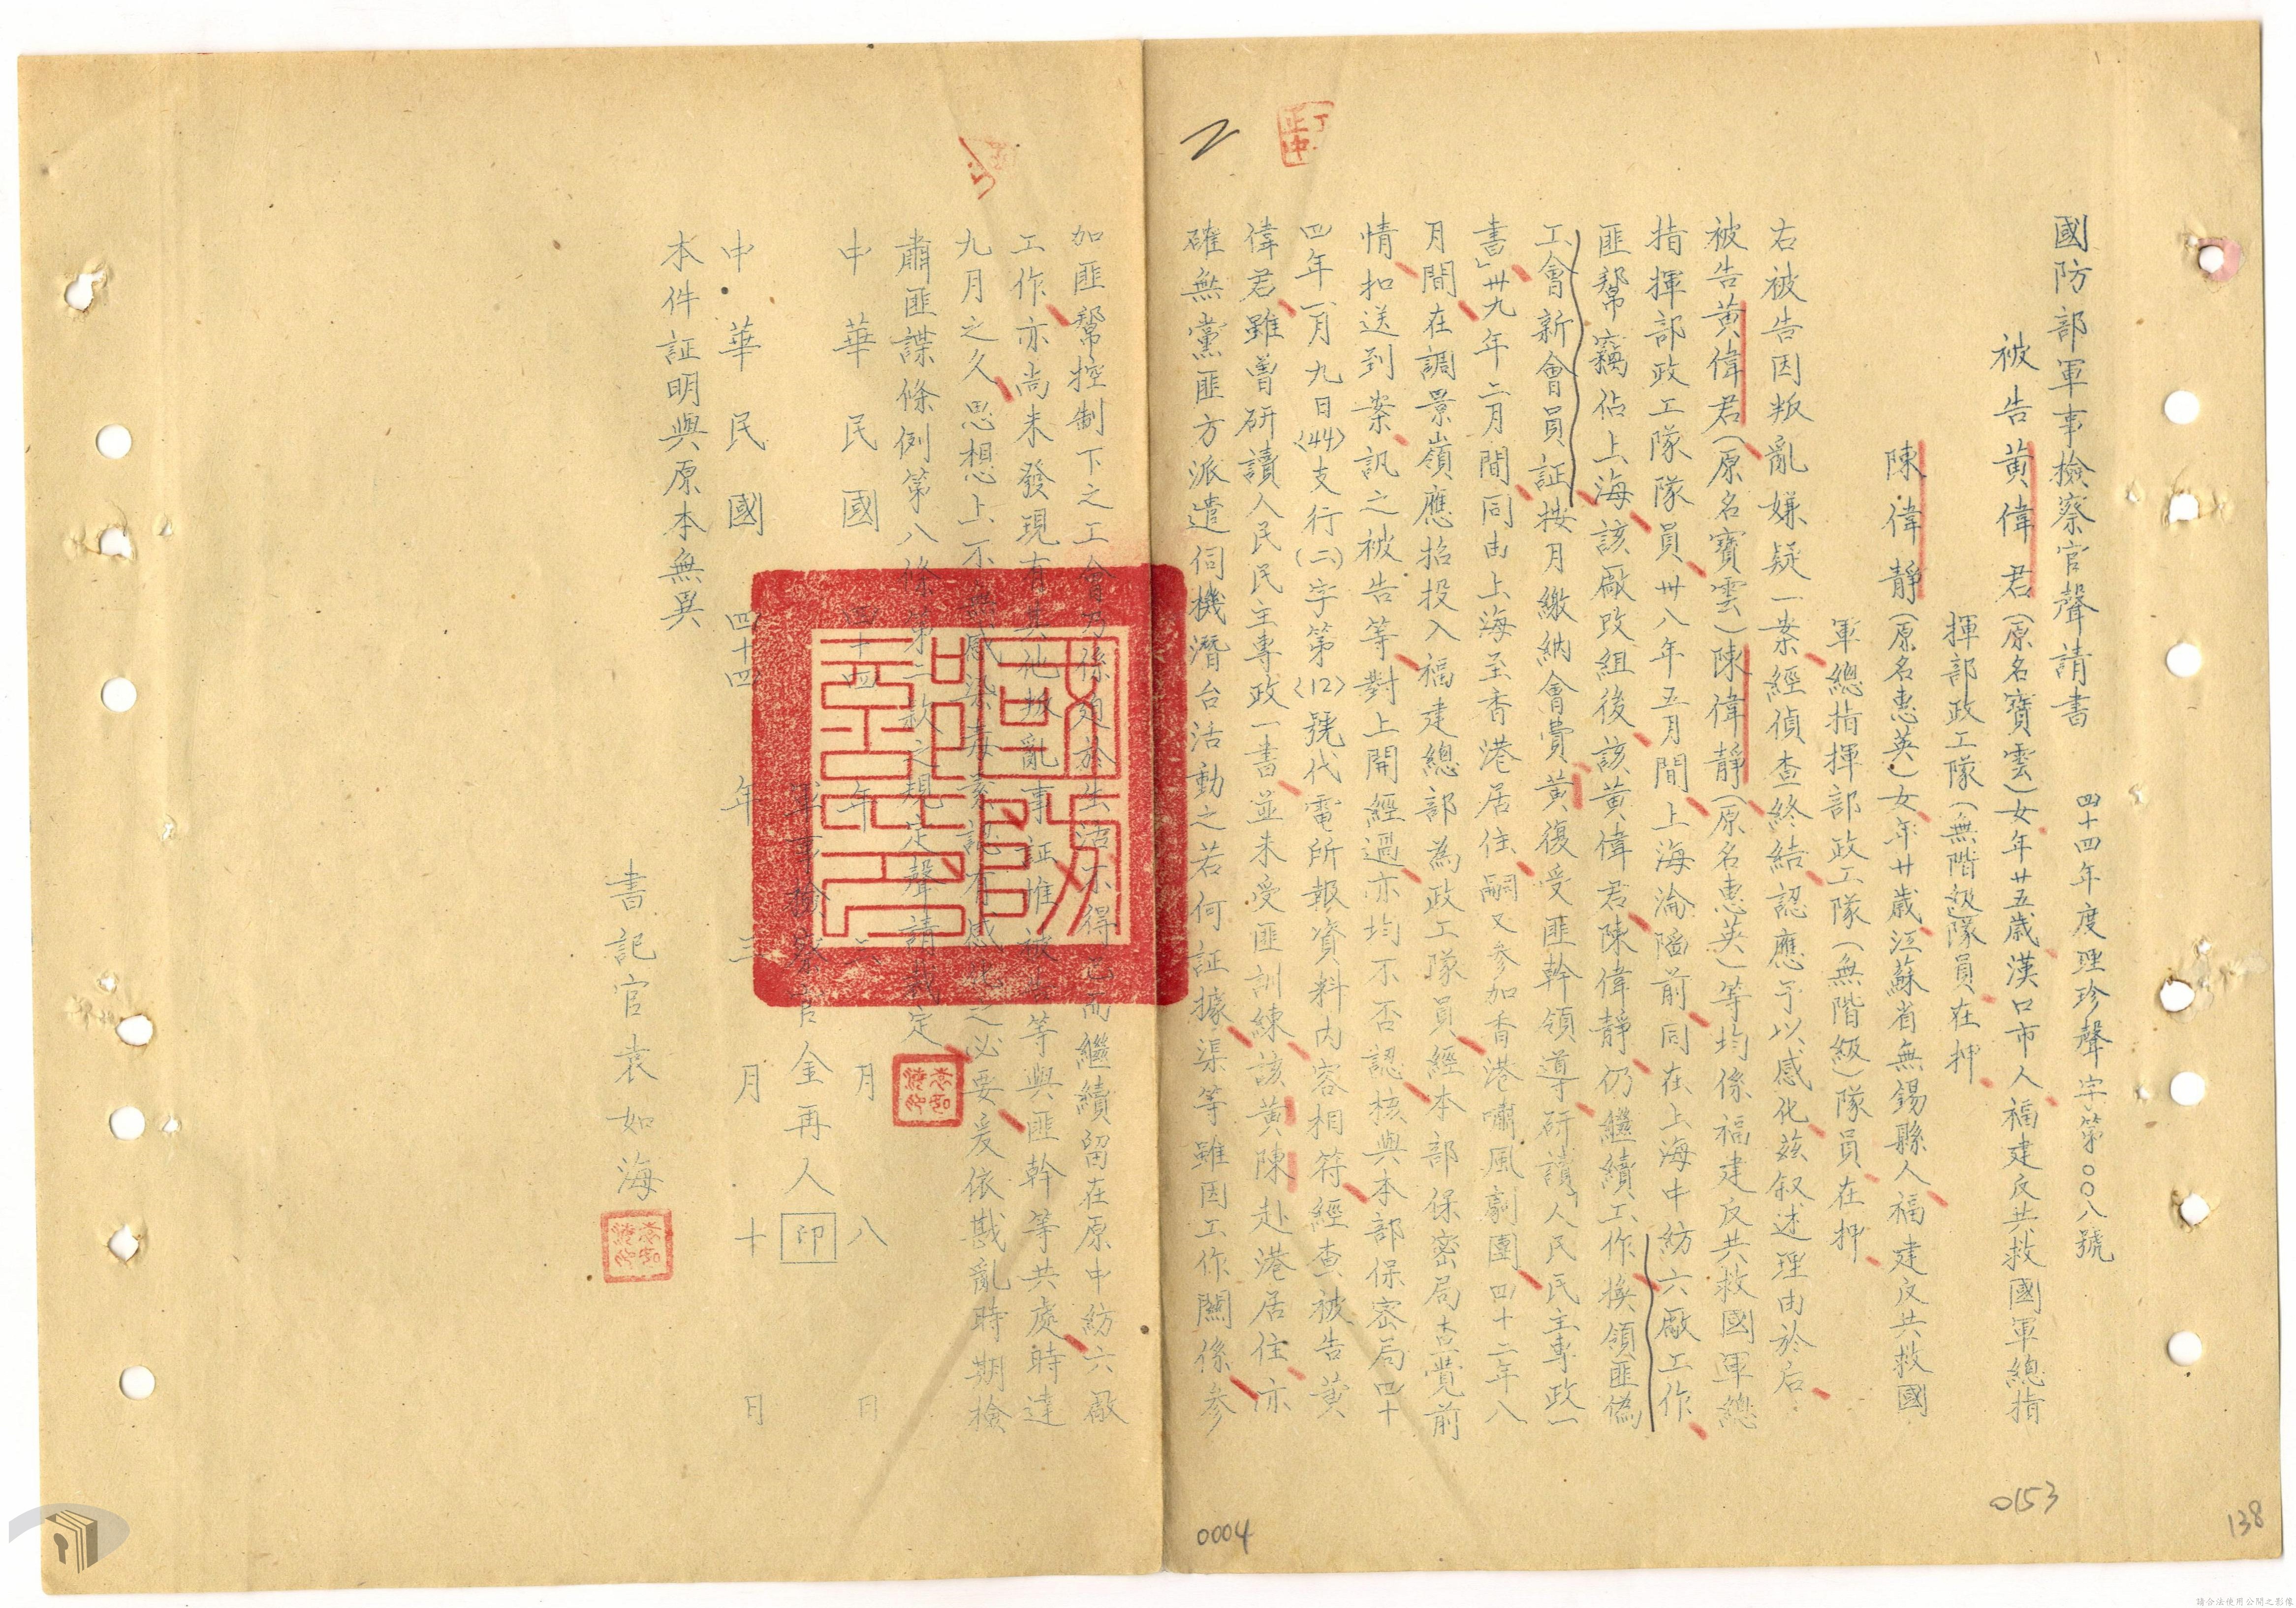 國防部軍事檢察官聲請書
四十四年度理珍聲字第〇〇八號
被告黃偉君(原名寶雲)女年廿五歲漢口市人福建反共救國軍總指
揮部政工隊(無階級)隊員在押
陳偉靜(原名惠英)女年廿歲江蘇省無錫縣人福建反共救國
軍總指揮部政工隊(無階級)隊員在押
右被告因叛亂嫌疑一案經偵查終結認應予以感化茲叙述理由於后
被告黃偉君(原名寶雲)陳偉靜(原名惠英)等均係福建反共救國軍總
指揮部政工隊隊員卅八年五月間上海淪陷前同在上海中紡六廠工作
匪幫竊佔上海該廠改組後該黃偉君陳偉靜仍繼續工作換領匪偽
工會新會員証按月繳納會費黃復受匪幹領導研讀「人民民主專政一
書」卅九年二月間同由上海至香港居住嗣又參加香港嘯風劇團四十二年八
月間在調景嶺應招投入福建總部為政工隊員經本部保密局查覺前
情扣送到案訊之被告等對上開經過亦均不否認核與本部保密局四十
四年一月九日(44)支行(二)字第(12)號代電所報資料內容相符經查被告黃
偉君雖曾研讀人民民主專政一書並未受匪訓練該黃陳赴港居住亦
確無黨匪方派遣伺機潛台活動之若何証據渠等雖因工作關係參
加匪幫控制下之工會乃係迫於生活不得已而繼續留在原中紡六廠
工作亦尚未發現有其他叛亂事証惟被告等與匪幹等共處時達
九月之久思想上不無感染毒素認有感化之必要爰依戡亂時期檢
肅匪諜條例第八條第二款之規定聲請裁定
中華民國四十四年二月八日
軍事檢察官金再人印
中華民國四十四年三月十日
本件証明與原本無異
書記官袁如海
丁正中
0153
138
0004
請合法使用公開之影像